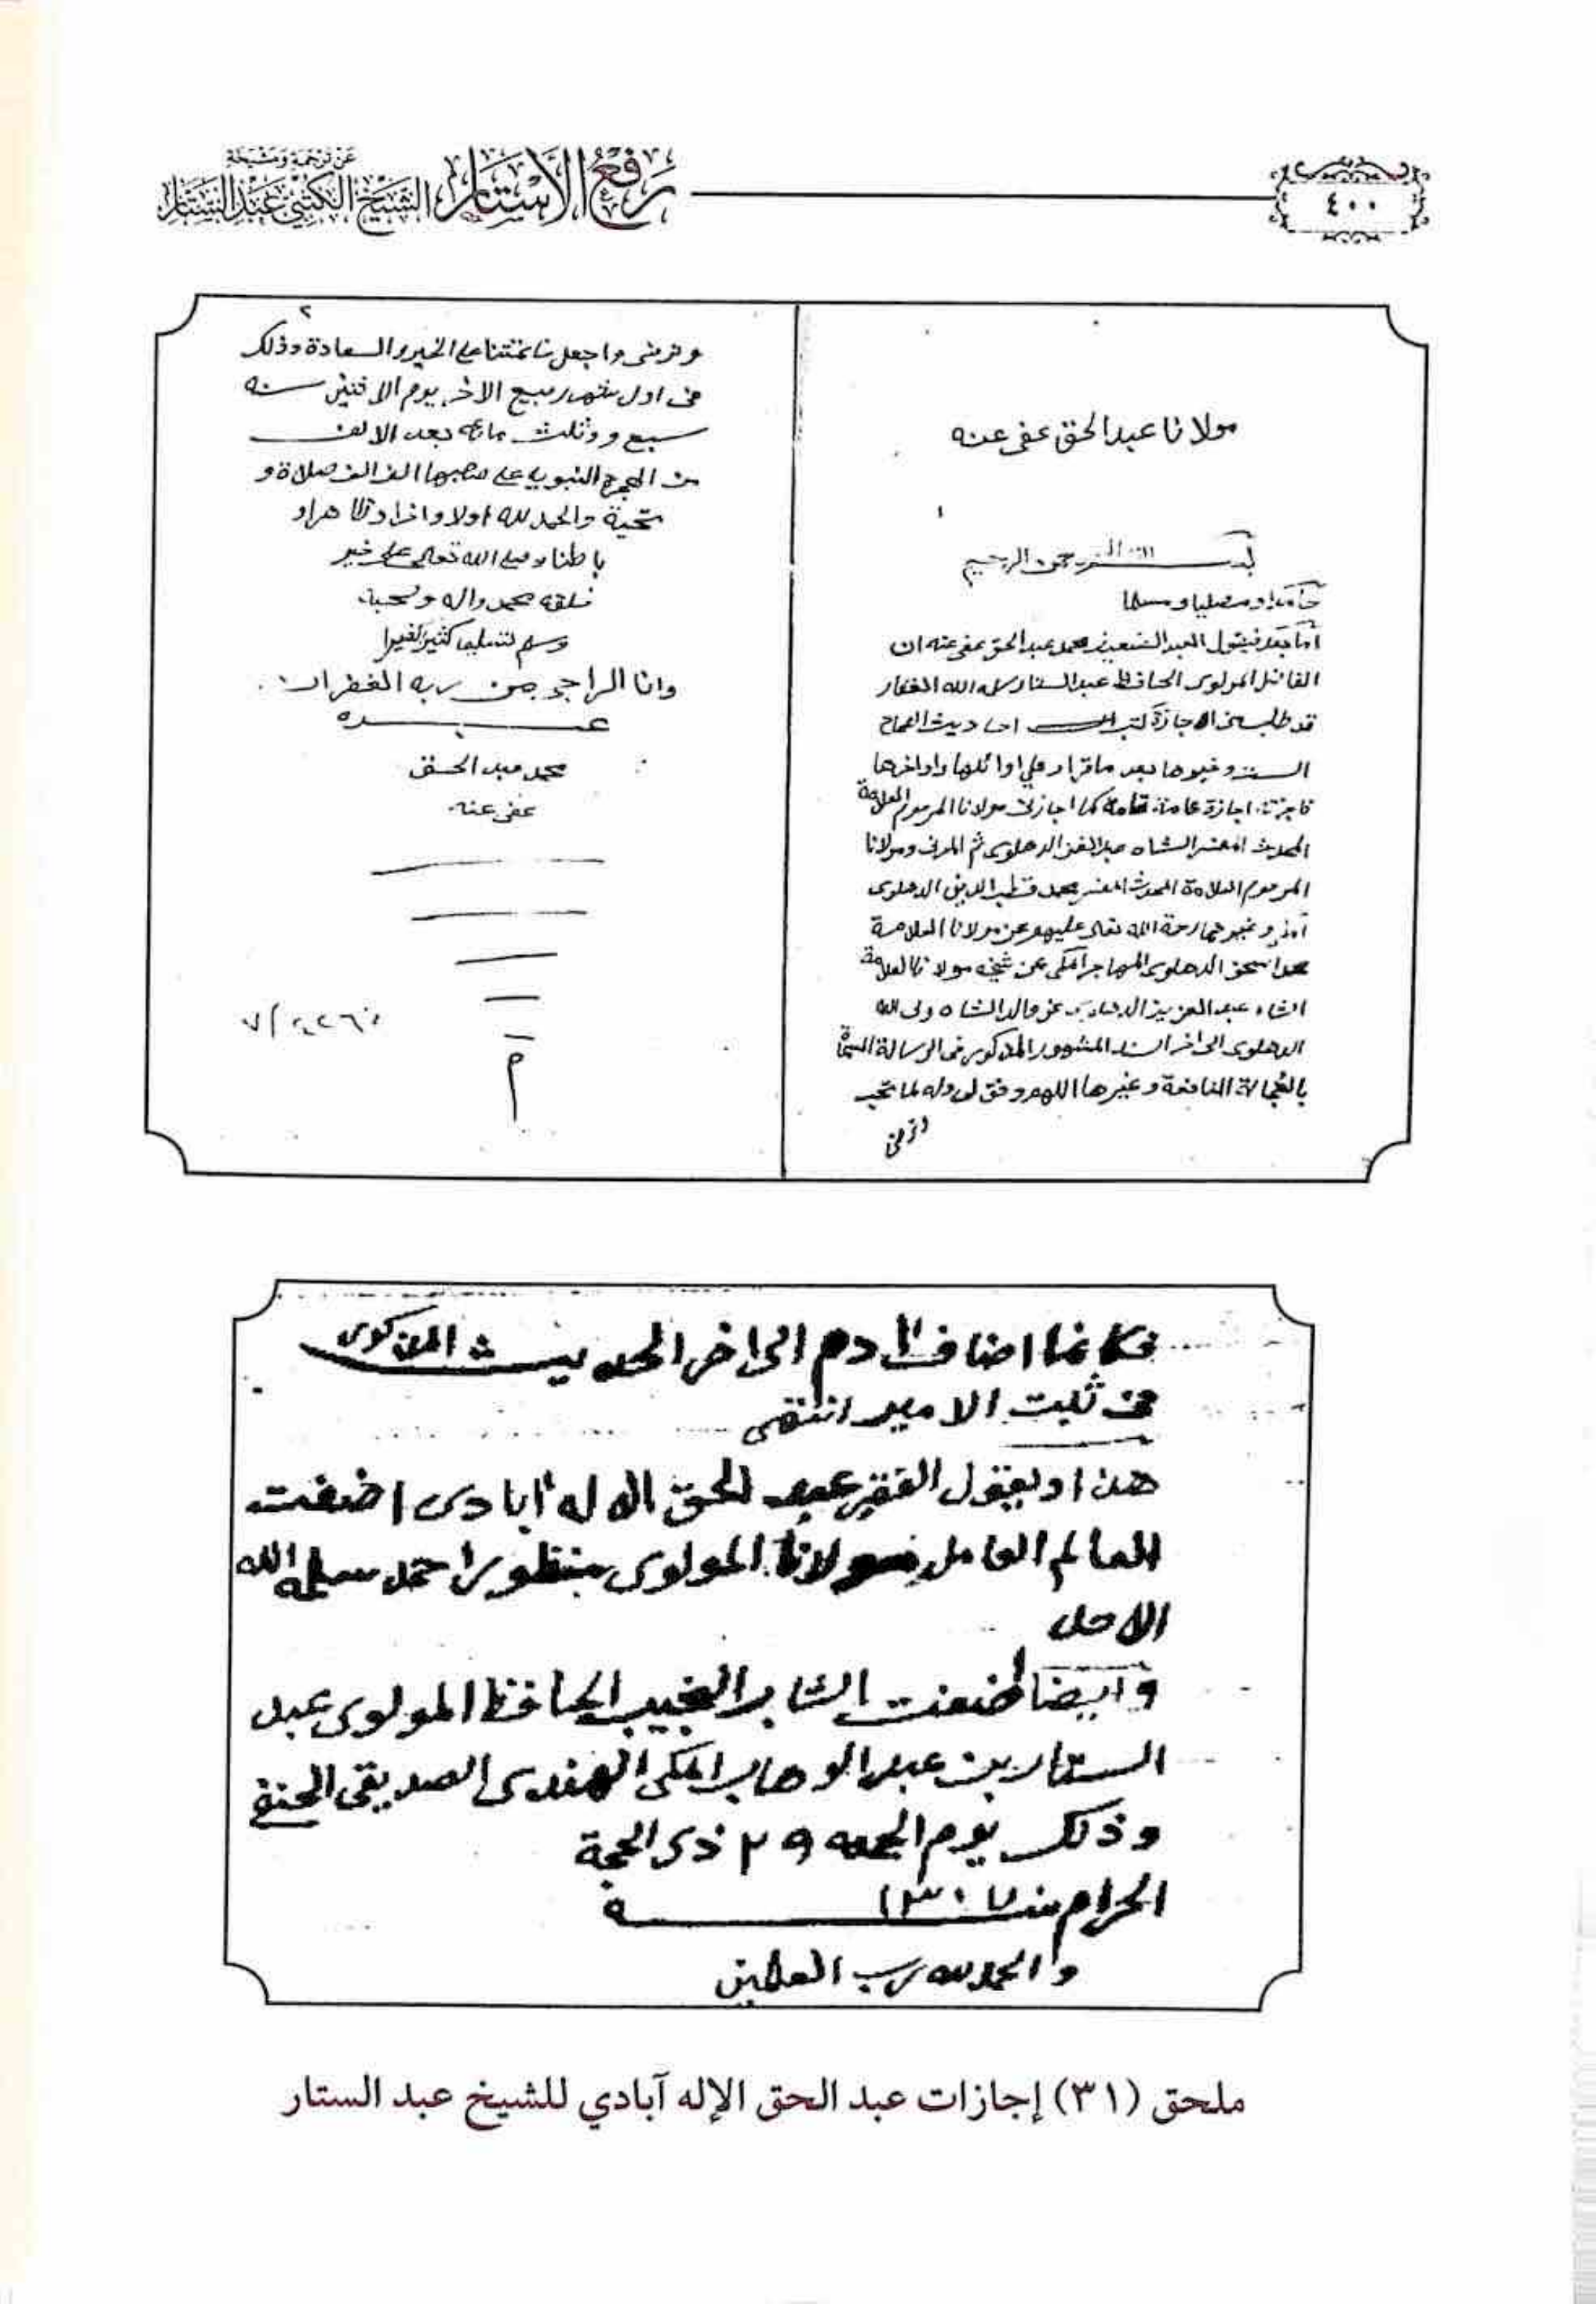 ٤٠٠
رفع الأستار
عن ترجمة ومشيخة
الشيخ الكتبي عبد الستار
مولانا عبدالحق عفى عنه
١
بسم الله الرحمن الرحيم
حامدا ومصليا ومسلما
أما بعد فيقول العبد الضعيف محمد عبدالحق عفى عنه ان
الفاضل المولوى الحافظ عبدالستار سلمه الله الغفار
قد طلب منى الاجازة لكتب احاديث الصحاح
الستة وغيرها بعد ما قرا على اوائلها واواخرها
فاجزته اجازة عامة تامة كما اجازنى مولانا المرحوم العلامة
المحدث المفسر الشاه عبدالغنى الدهلوى ثم المدنى ومولانا
المرحوم العلامة المحدث المفسر محمد قطب الدين الدهلوى
وغيرهما رحمة الله تعالى عليهم عن مولانا العلامة
محمد اسحق الدهلوى المهاجر المكى عن شيخه مولانا العلامة
الشاه عبد العزيز الدهلوى عن والده الشاه ولى الله
الدهلوى الى اخر السند المشهور المذكور فى الرسالة المسماة
بالعجالة النافعة وغيرها اللهم وفق لى وله لما تحب
وترضى
٢
وترضى واجعل خاتمتنا على الخير والسعادة وذلك
فى اول شهر ربيع الاخر يوم الاثنين سنه
سبع وثلث مائة بعد الالف
من الهجرة النبويه على صاحبها الف الف صلاة و
تحية والحمد لله اولا واخرا وظاهرا و
باطنا وصلى الله تعالى على خير
خلقه محمد واله وصحبه
وسلم تسليما كثيرا كثيرا
وانا الراجى من ربه الغفران
عبده
محمد عبد الحق
عفى عنه
م
فكانما اضاف ادم الى اخر الحديث المذكور
فى ثبت الامير انتهى
هذا ويقول الفقير عبد الحق الاله ابادى اضفت
العالم العامل مولانا المولوى منظور احمد سلمه الله
الاحد
وايضا اضفت الشاب النجيب الحافظ المولوى عبد
الستار بن عبد الوهاب المكى الهندى الصديقى الحنفى
وذلك يوم الجمعه ٢٩ ذى الحجة
الحرام سنة ١٣٠٧
والحمد لله رب العلمين
ملحق (٣١) إجازات عبد الحق الإله آبادي للشيخ عبد الستار